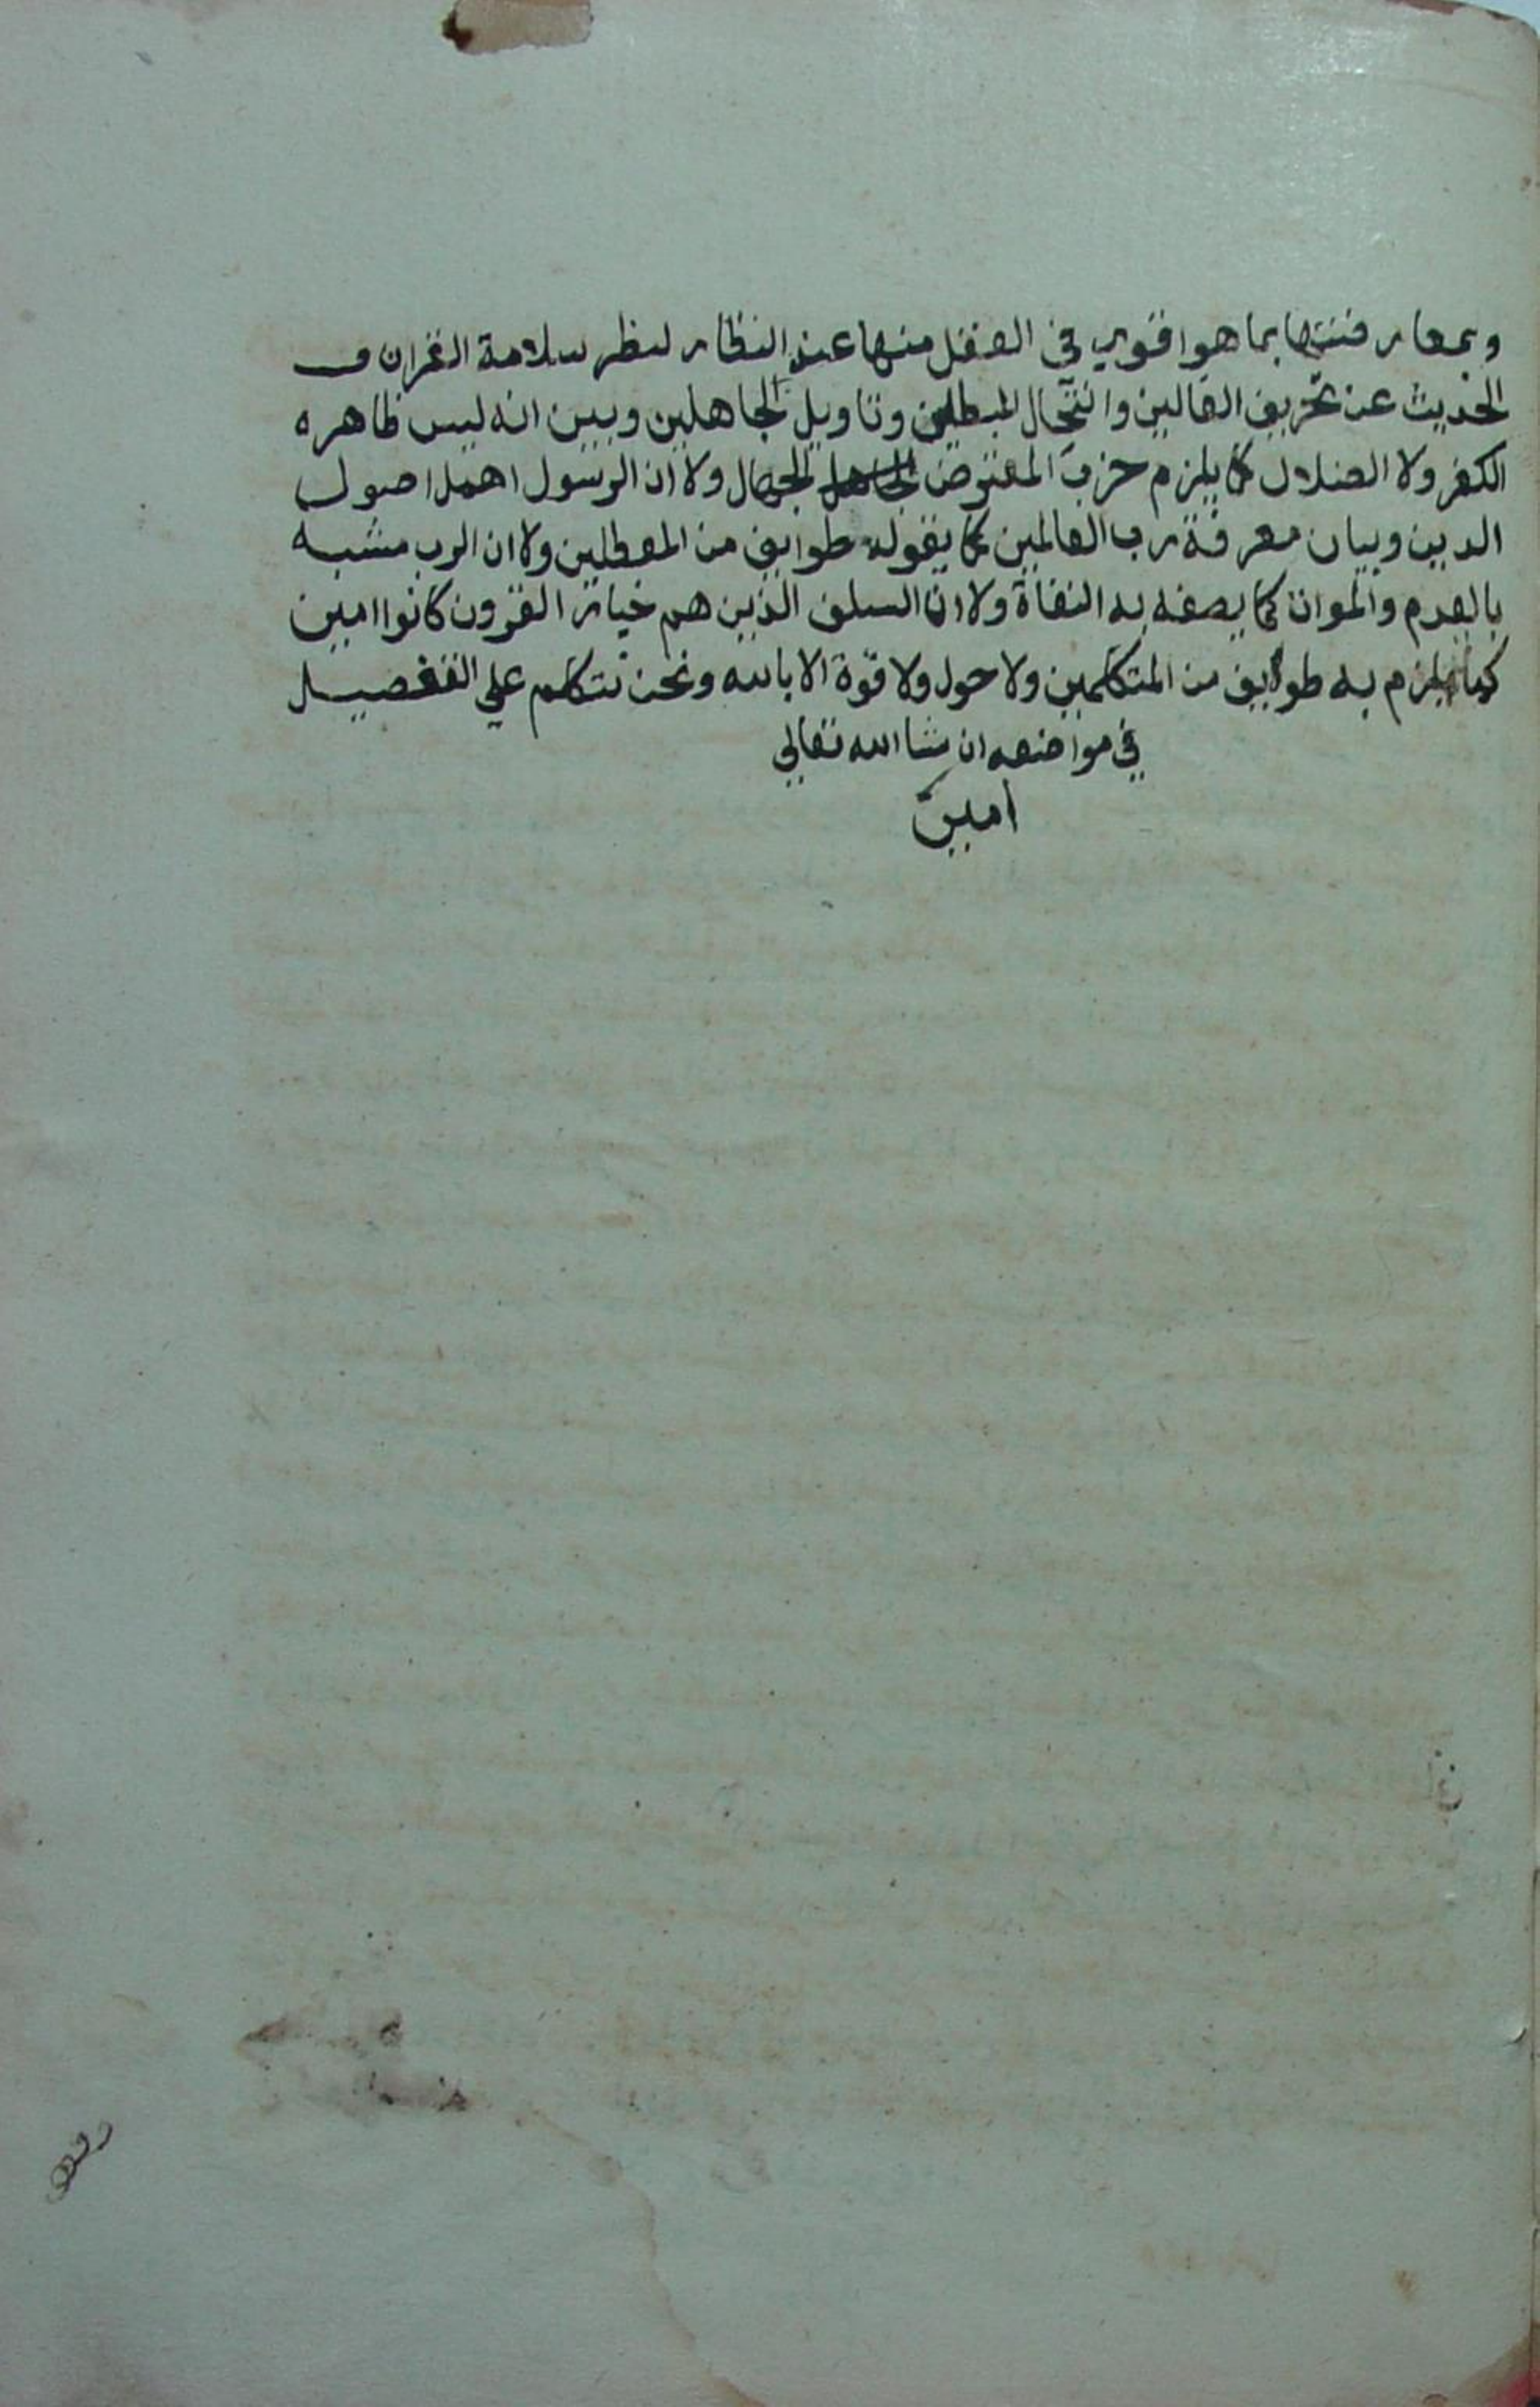 وبمعارضتها بما هو اقوي في العقل منها عند النظار لنظر سلامة القران و
الحديث عن تحريف الغالين وانتحال المبطلين وتاويل الجاهلين وبين انه ليس ظاهره
الكفر ولا الضلال كما يلزم حزب المعترض الجهال ولا ان الرسول اهمل اصول
الدين وبيان معرفة رب العالمين كما يقوله طوايف من المعطلين ولا ان الرب مشبه
بالعدم والموات كما يصفه به النفاة ولا ان السلف الذين هم خيار القرون كانوا اميين
كما يلزم به طوايف من المتكلمين ولا حول ولا قوة الا بالله ونحن نتكلم علي التفصيل
في مواضعه ان شا الله تعالي
امين